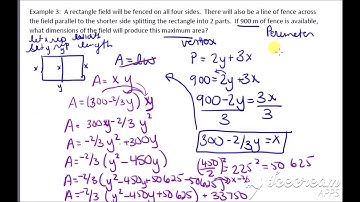 Example 3: A rectangle field will be fenced on all four sides. There will also be a line of fence across
the field parallel to the shorter side splitting the rectangle into 2 parts. If 900 m of fence is available,
what dimensions of the field will produce this maximum area?
Perimeter
vertex
let x rep width
let y rep length
x
x
x
y
y
P = 2y + 3x
900 = 2y + 3x
900 - 2y = 3x
3 3
300 - 2/3 y = x
A = x y
A = (300 - 2/3 y) y
A = 300y - 2/3 y²
A = -2/3 y² + 300y
A = -2/3 (y² - 450y)
(450/2)² = 225² = 50 625
A = -2/3 (y² - 450y + 50 625 - 50 625)
A = -2/3 (y² - 450y + 50 625) + 33750
icecream
APPS